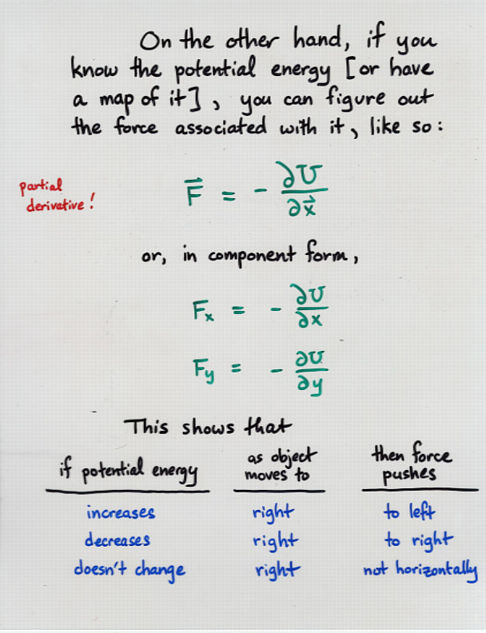 On the other hand, if you
know the potential energy [or have
a map of it], you can figure out
the force associated with it, like so:
partial
derivative!
F⃗ = - ∂U/∂x⃗
or, in component form,
Fx = - ∂U/∂x
Fy = - ∂U/∂y
This shows that
if potential energy as object moves to then force pushes
increases right to left
decreases right to right
doesn't change right not horizontally